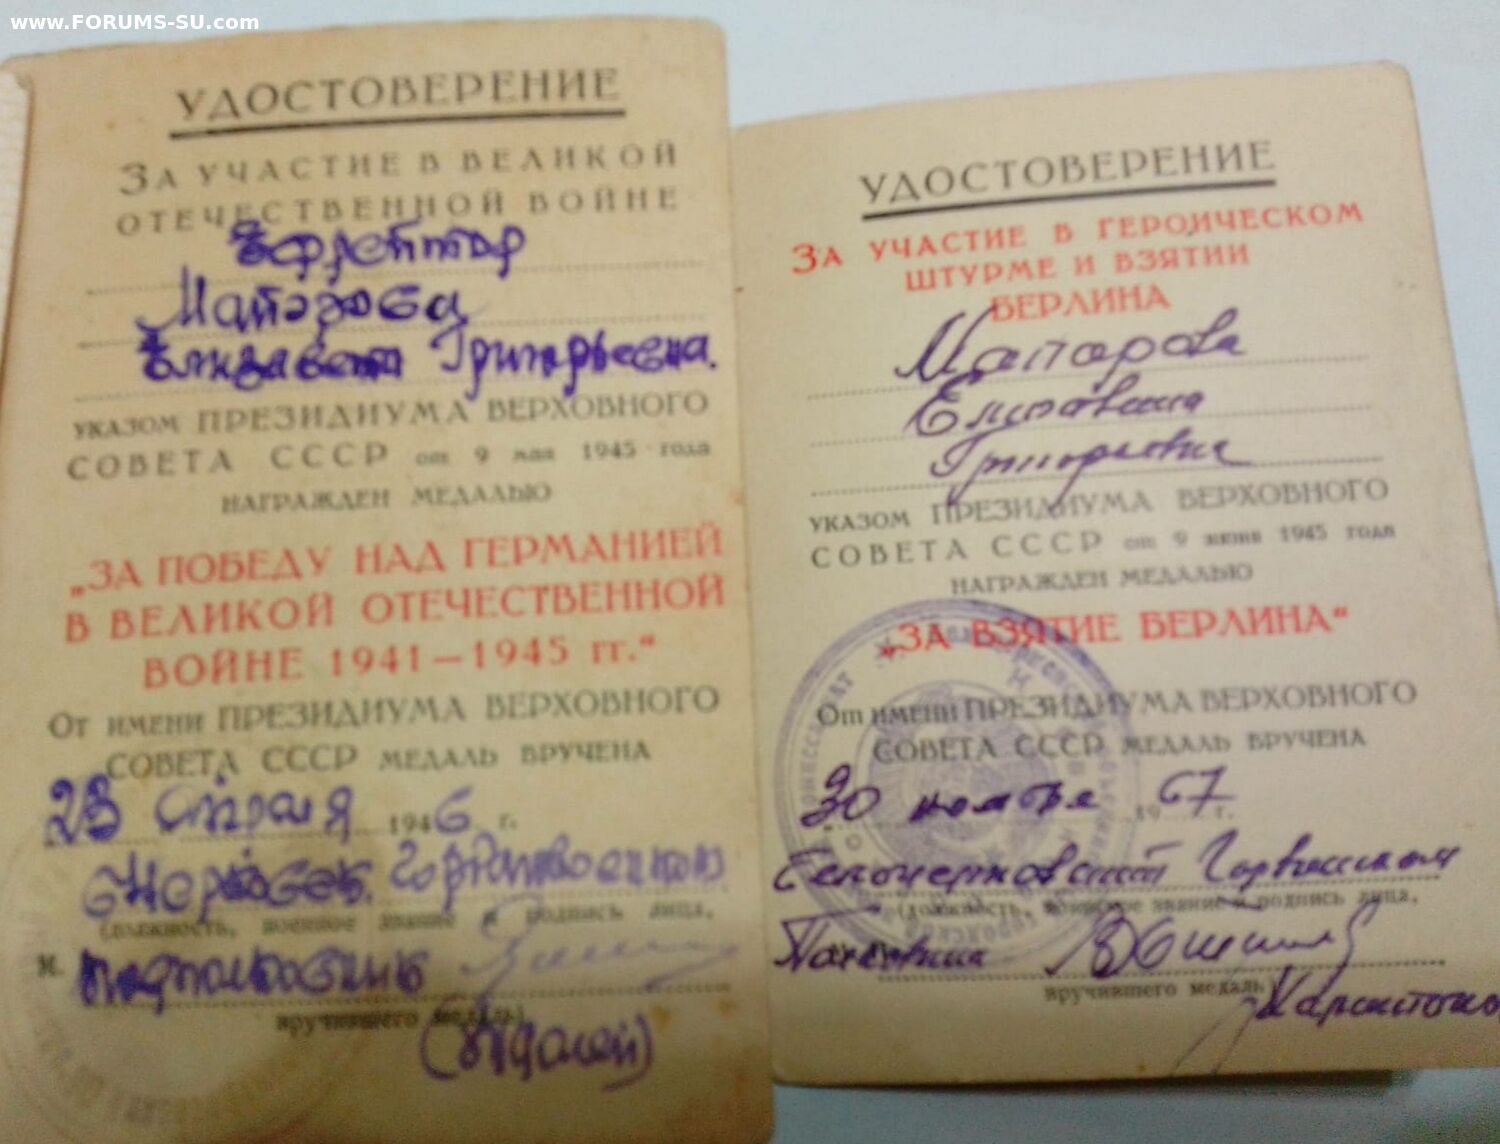 www.FORUMS-SU.com
УДОСТОВЕРЕНИЕ
ЗА УЧАСТИЕ В ВЕЛИКОЙ
ОТЕЧЕСТВЕННОЙ ВОЙНЕ
Ефрейтор
Елизавета Григорьевна.
УКАЗОМ ПРЕЗИДИУМА ВЕРХОВНОГО
СОВЕТА СССР от 9 мая 1945 года
НАГРАЖДЕН МЕДАЛЬЮ
„ЗА ПОБЕДУ НАД ГЕРМАНИЕЙ
В ВЕЛИКОЙ ОТЕЧЕСТВЕННОЙ
ВОЙНЕ 1941—1945 гг.“
ОТ ИМЕНИ ПРЕЗИДИУМА ВЕРХОВНОГО
СОВЕТА СССР МЕДАЛЬ ВРУЧЕНА
23 апреля 1946 г.
(должность, военное звание и подпись лица,
М. подполковник
вручившего медаль)
УДОСТОВЕРЕНИЕ
ЗА УЧАСТИЕ В ГЕРОИЧЕСКОМ
ШТУРМЕ И ВЗЯТИИ
БЕРЛИНА
Матарова
Елизавета
Григорьевна
УКАЗОМ ПРЕЗИДИУМА ВЕРХОВНОГО
СОВЕТА СССР от 9 июня 1945 года
НАГРАЖДЕН МЕДАЛЬЮ
„ЗА ВЗЯТИЕ БЕРЛИНА“
От имени ПРЕЗИДИУМА ВЕРХОВНОГО
СОВЕТА СССР МЕДАЛЬ ВРУЧЕНА
30 ноября 1967 г.
Белоцерковский Горвоенком
(должность, воинское звание и подпись лица,
Полковник
вручившего медаль)